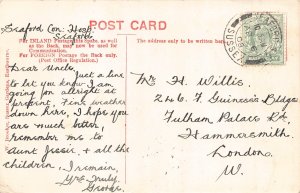 POST CARD
Seaford Con. Hosp.
Seaford
For INLAND Postage this Space, as well
as the Back, may now be used for
Communication.
For FOREIGN Postage the Back only.
(Post Office Regulation).
The address only to be written here.
Dear Uncle,
Just a line
to let you know I am
going on allright at
present, Fine weather
down here, I hope you
are much better,
remember me to
Aunt Jessie, & all the
children. I remain,
Yrs Truly
George.
Mr H. Willis,
246 F, Guiness's Bldgs
Fulham Palace Rd
Hammersmith
London
W.